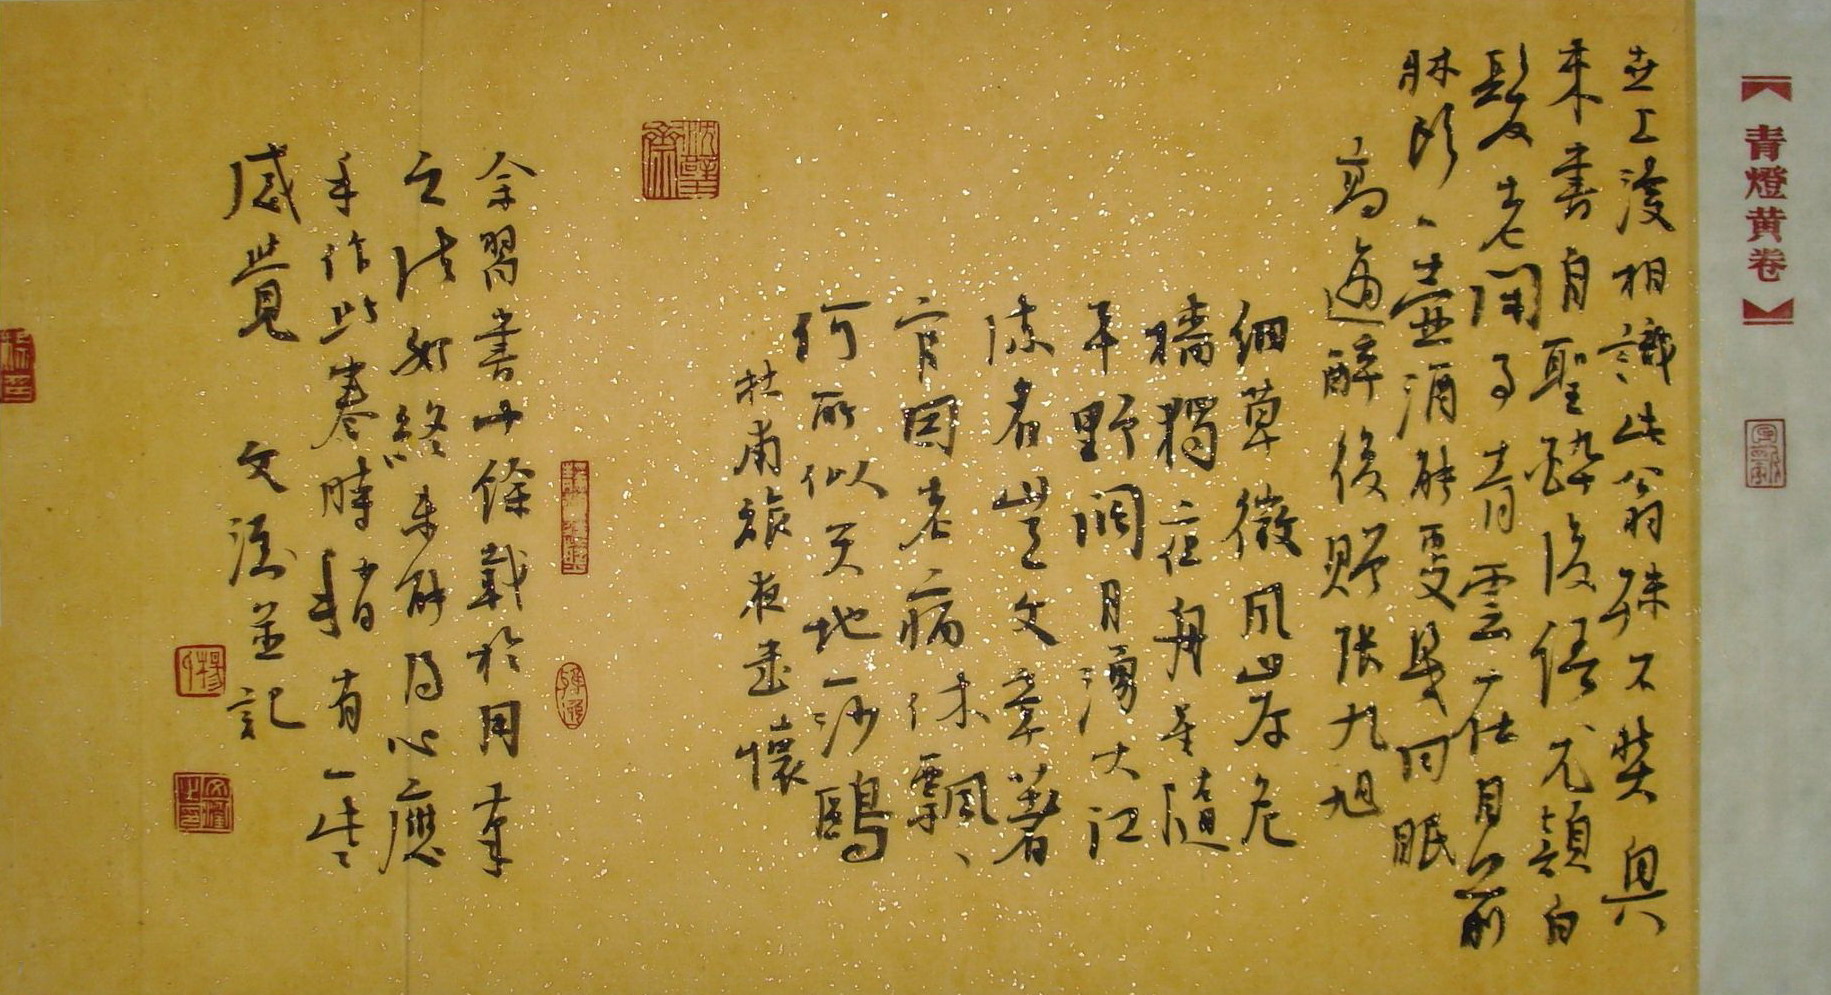 【青燈黄卷】
世上漫相識此翁殊不然興
來書自聖醉後語尤顛白
髮老閑事青雲在目前
牀頭一壺酒能更幾回眠
高適醉後贈張九旭
細草微風岸危
檣獨夜舟星隨
平野闊月湧大江
流名豈文章著
官因老病休飄飄
何所似天地一沙鷗
杜甫旅夜書懷
余習書廿餘載於用筆
之法始終未能得心應
手作此卷時稍有一些
感覺 文 並記